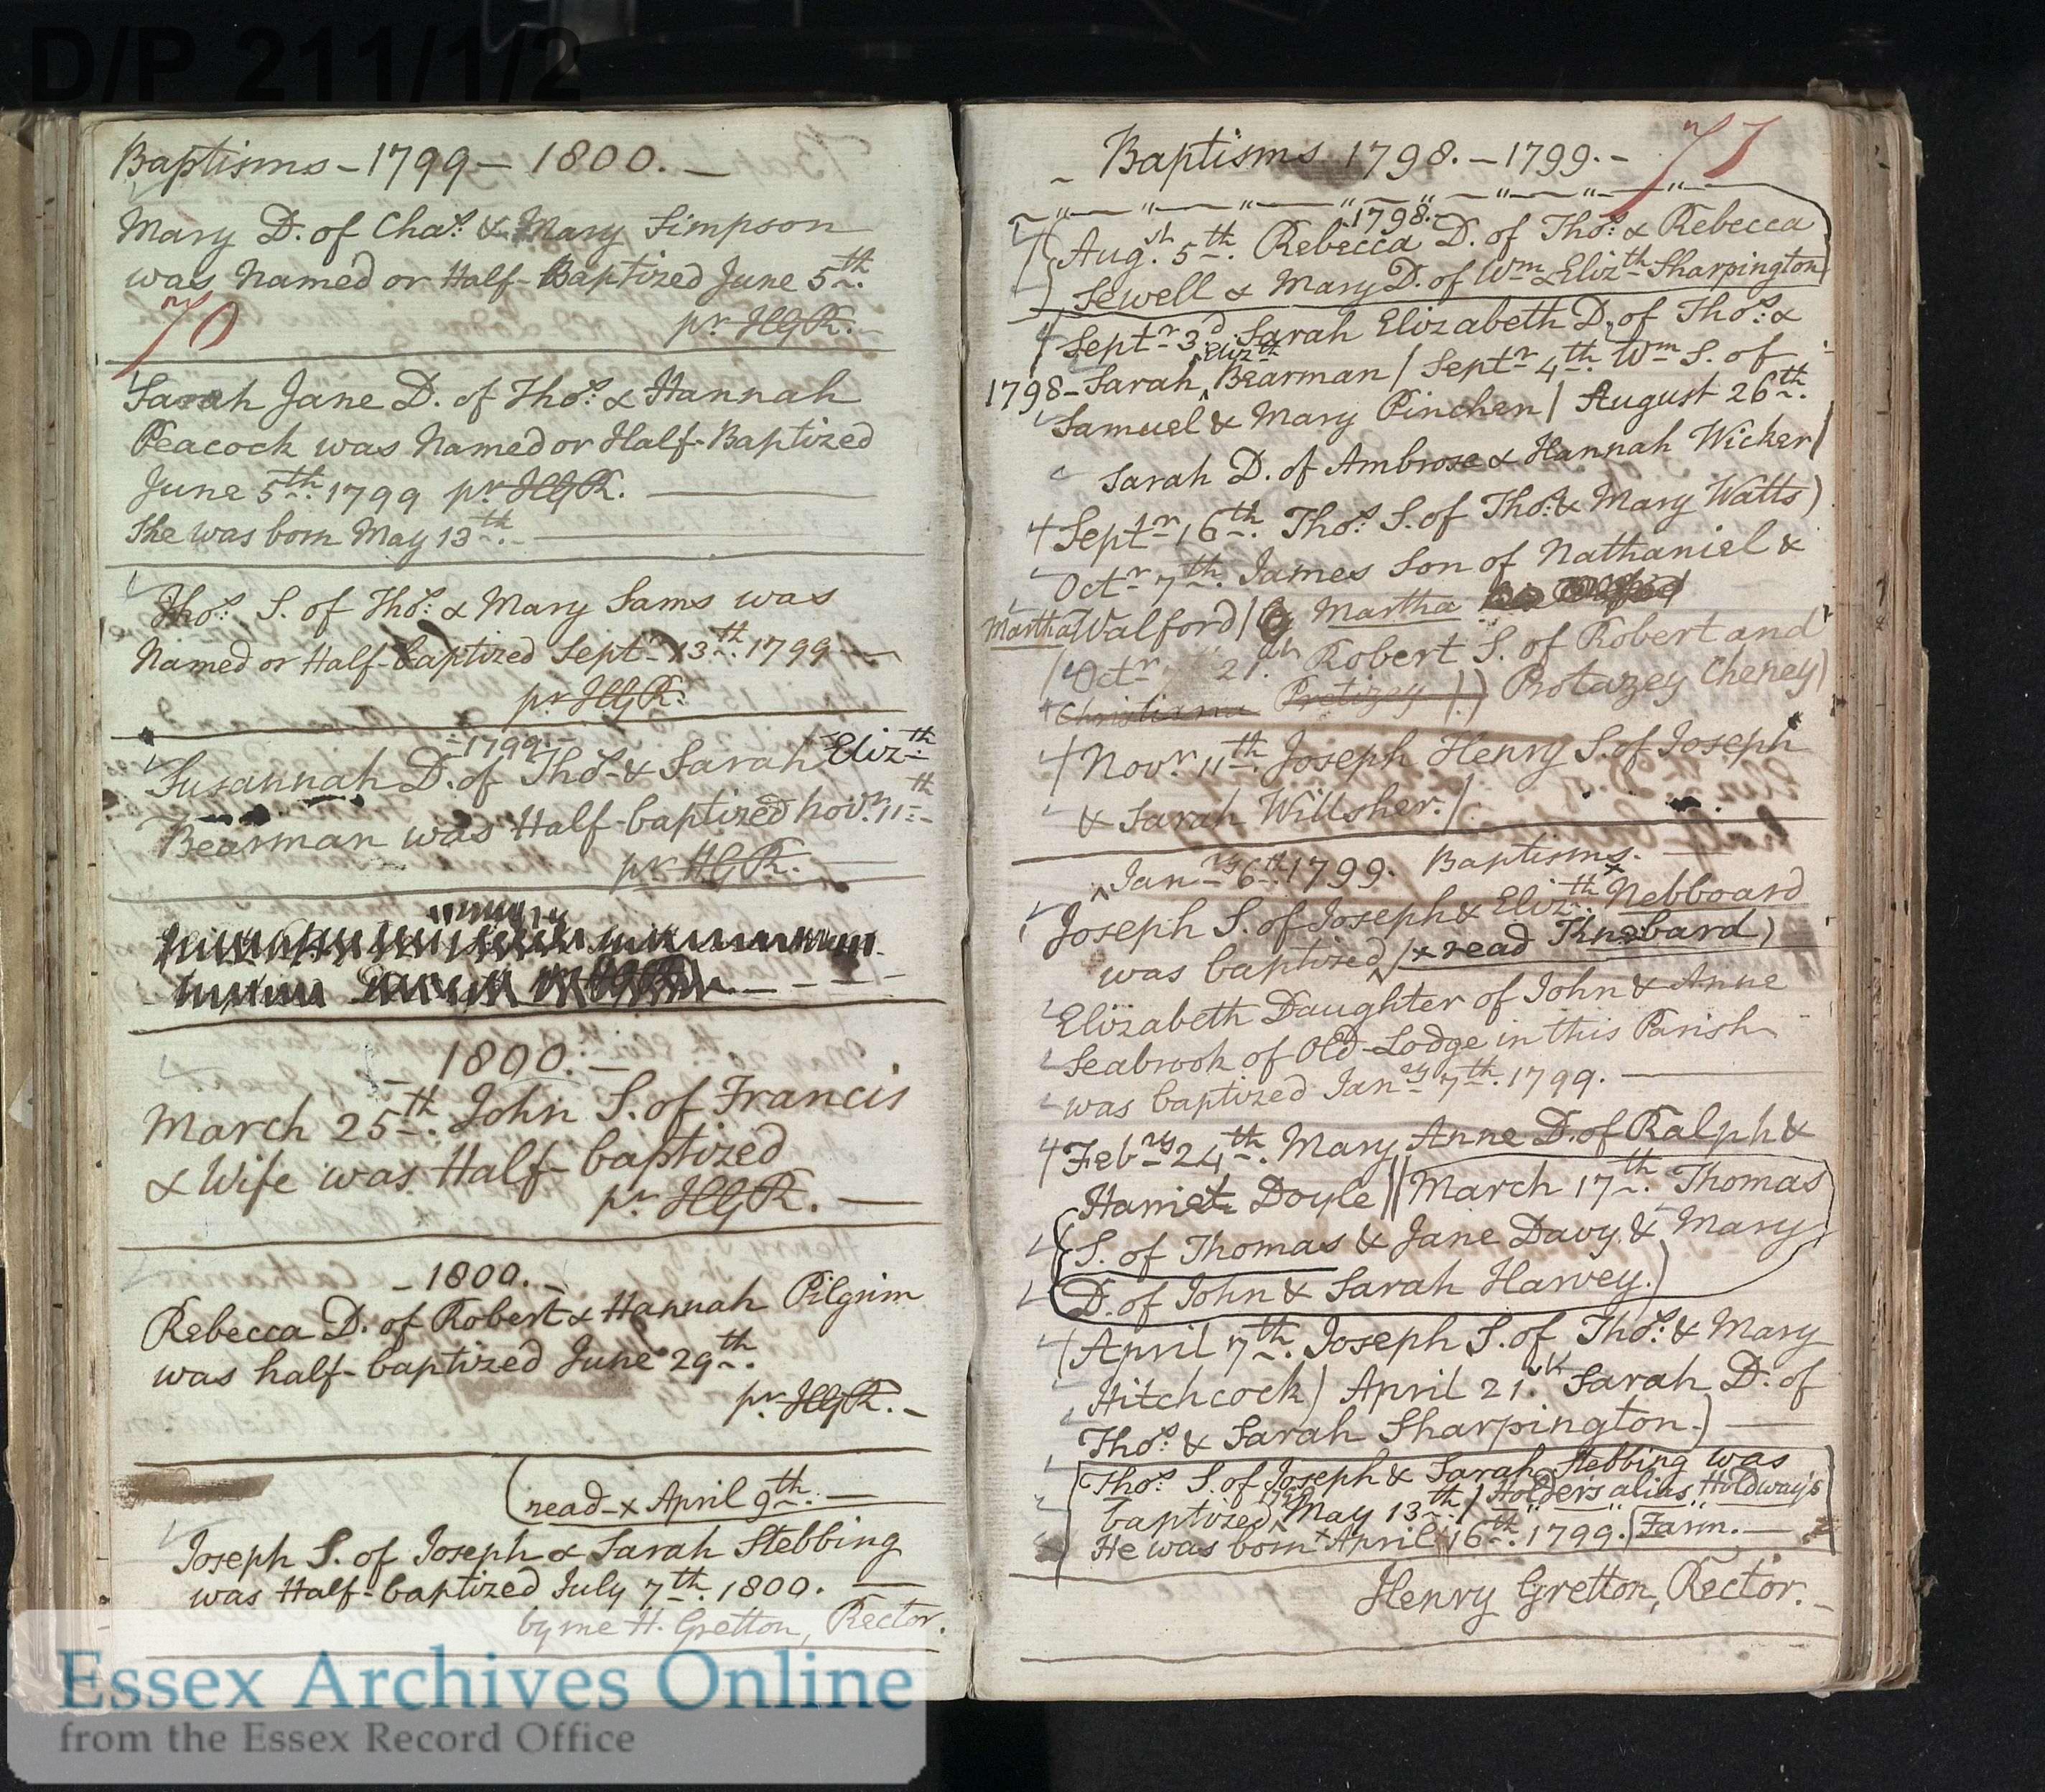 D/P 211/1/2
Baptisms - 1799 - 1800. -
Mary D. of Chas. & Mary Simpson
was Named or Half-Baptized June 5th.
70
pr. HGR.
Sarah Jane D. of Thos. & Hannah
Peacock was Named or Half-Baptized
June 5th. 1799 pr HGR.
She was born May 13th.
Thos. S. of Thos. & Mary Sams was
Named or Half-baptized Septr. 13th. 1799
pr HGR.
- 1799 -
Susannah D. of Thos. & Sarah Elizth.
Bearman was Half-baptized Novr. 11th.
pr HGR.
- 1800. -
March 25th. John S. of Francis
& Wife was Half-baptized
pr. HGR.
- 1800. -
Rebecca D. of Robert & Hannah Pilgrim
was half-baptized June 29th.
pr. HGR. -
(read x April 9th.
Joseph S. of Joseph & Sarah Stebbing
was Half-baptized July 7th. 1800.
by me H. Gretton, Rector.
Essex Archives Online
from the Essex Record Office
71
- Baptisms 1798. - 1799. -
1798. -
Augst. 5th. Rebecca D. of Thos. & Rebecca
Sewell & Mary D. of Wm. & Elizth. Sharpington
Septr. 3d. Sarah Elizabeth D. of Thos. &
Elizth
1798 - Sarah ‸ Bearman / Septr. 4th. Wm S. of
Samuel & Mary Pinchen / August 26th.
Sarah D. of Ambrose & Hannah Wicker /
Septr. 16th. Thos. S. of Thos. & Mary Watts)
Octr. 7th. James Son of Nathaniel &
Martha Walford / Martha
Octr. 21. Robert S. of Robert and
Christianna Protizey /) Protazey Cheney)
Novr. 11th. Joseph Henry S. of Joseph
& Sarah Willsher. /
‸ Janry 6th. 1799. Baptisms. -
Joseph S. of Joseph & Elizth. x Nebboard
was baptized ‸ / x read Knebard)
Elizabeth Daughter of John & Anne
Seabrook of Old-Lodge in this Parish
was baptized Janry 7th. 1799.
Febry 24th. Mary Anne D. of Ralph &
Harriet Doyle // March 17th. Thomas
S. of Thomas & Jane Davy & Mary
D. of John & Sarah Harvey.)
April 7th. Joseph S. of Thos. & Mary
Hitchcock) April 21st. Sarah D. of
Thos. & Sarah Sharpington.)
Thos. S. of Joseph & Sarah Stebbing was
baptized ‸ May 13th. / Holders alias Holdways
He was born x April 16th. 1799. (Farm. -
Henry Gretton, Rector. -